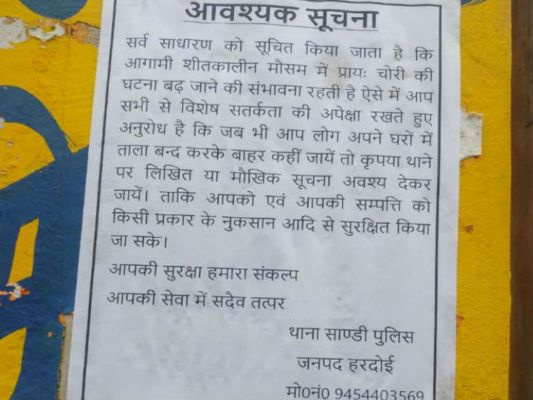 आवश्यक सूचना
सर्व साधारण को सूचित किया जाता है कि
आगामी शीतकालीन मौसम में प्रायः चोरी की
घटना बढ़ जाने की संभावना रहती है ऐसे में आप
सभी से विशेष सतर्कता की अपेक्षा रखते हुए
अनुरोध है कि जब भी आप लोग अपने घरों में
ताला बन्द करके बाहर कहीं जायें तो कृपया थाने
पर लिखित या मौखिक सूचना अवश्य देकर
जायें। ताकि आपको एवं आपकी सम्पत्ति को
किसी प्रकार के नुकसान आदि से सुरक्षित किया
जा सके।
आपकी सुरक्षा हमारा संकल्प
आपकी सेवा में सदैव तत्पर
थाना साण्डी पुलिस
जनपद हरदोई
मो0नं0 9454403569